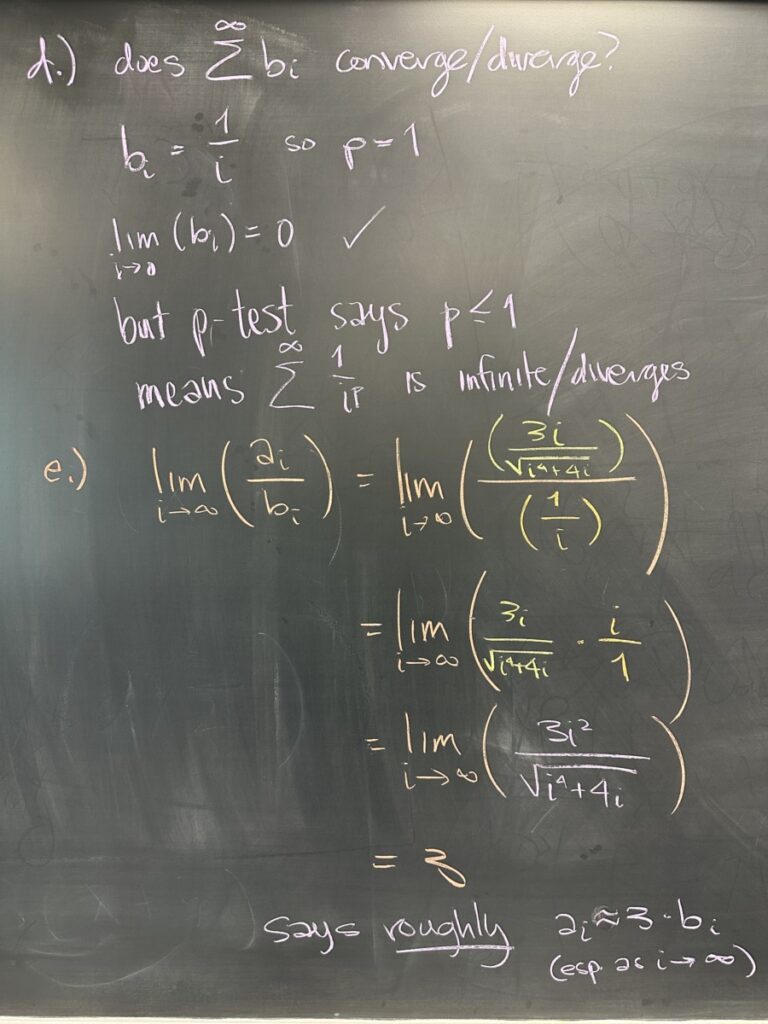 d.) does ∑^∞ bᵢ converge/diverge?
bᵢ = 1/i so p = 1
lim_{i→∞} (bᵢ) = 0 ✓
but p-test says p ≤ 1
means ∑^∞ 1/i^p is infinite/diverges
e.) lim_{i→∞} (aᵢ/bᵢ) = lim_{i→∞} ((3i/√(i⁴+4i))/(1/i))
= lim_{i→∞} (3i/√(i⁴+4i) · i/1)
= lim_{i→∞} (3i²/√(i⁴+4i))
= 3
says roughly aᵢ ≈ 3·bᵢ
(esp as i→∞)